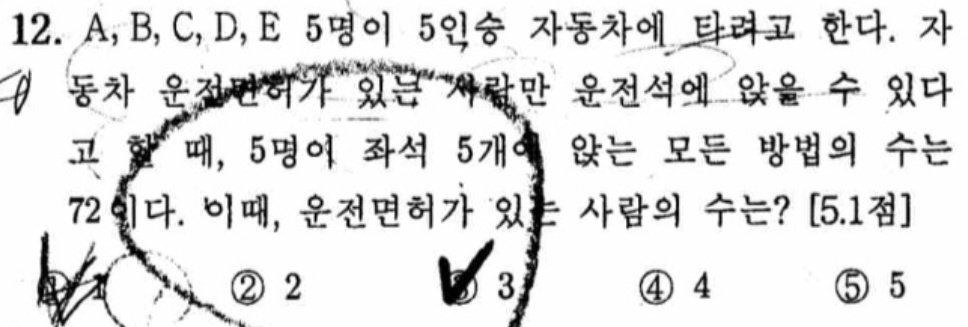 12. A, B, C, D, E 5명이 5인승 자동차에 타려고 한다. 자
동차 운전면허가 있는 사람만 운전석에 앉을 수 있다
고 할 때, 5명이 좌석 5개에 앉는 모든 방법의 수는
72이다. 이때, 운전면허가 있는 사람의 수는? [5.1점]
① 1 ② 2 ③ 3 ④ 4 ⑤ 5